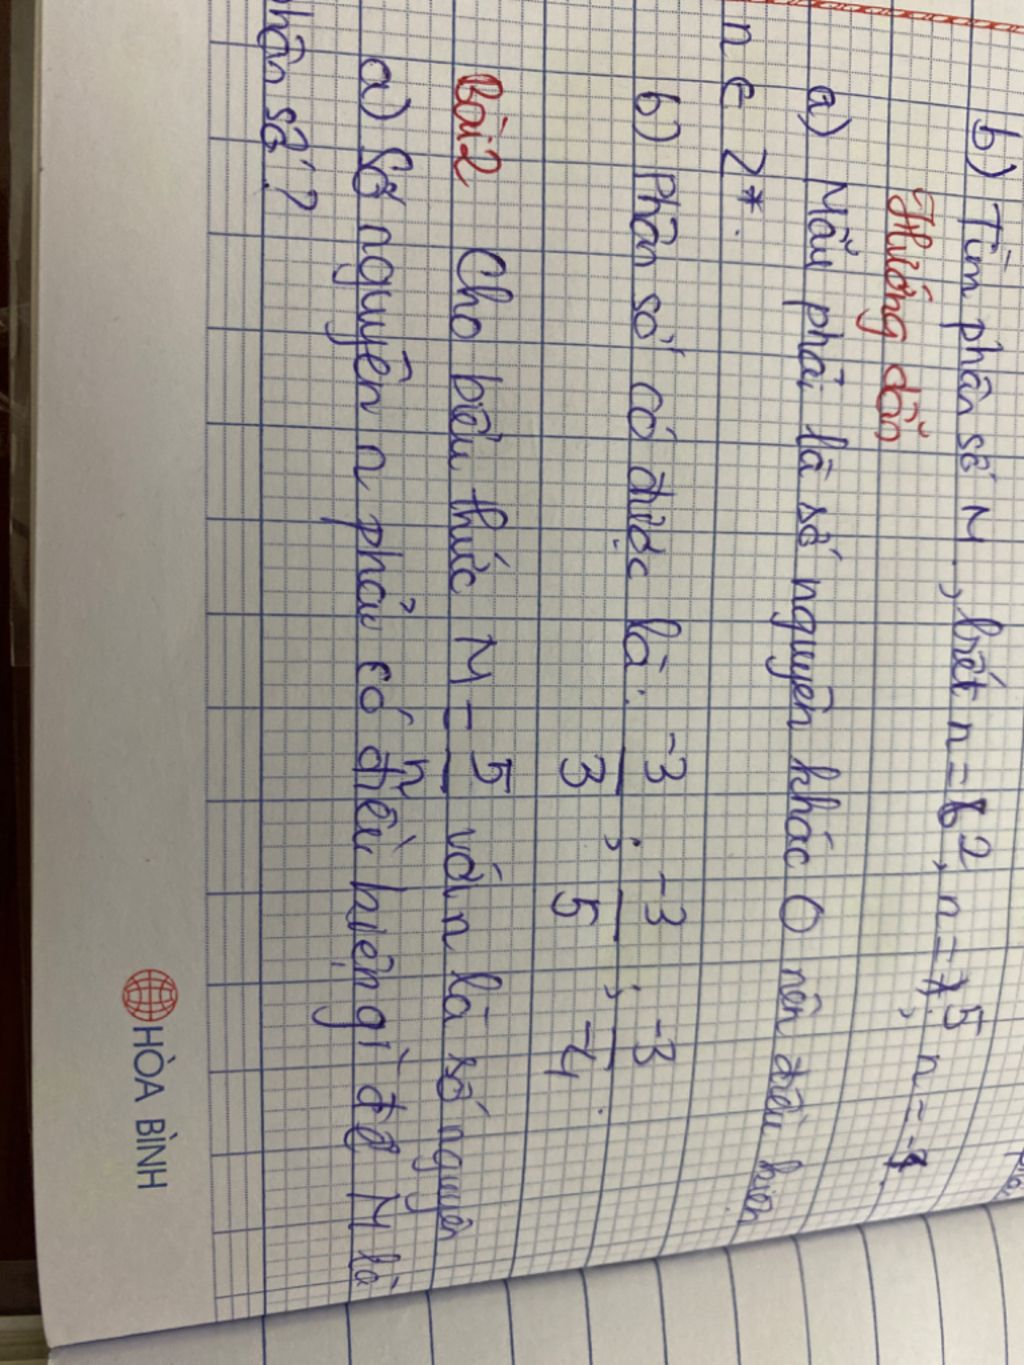 b) Tìm phân số M, biết n = 2, n = 5, n = -4
Hướng dẫn
a) Mẫu phải là số nguyên khác 0 nên điều kiện
n ∈ Z*.
b) Phân số có được là: -3/3 ; -3/5 ; -3/-4.
Bài 2 Cho biểu thức M = 5/n với n là số nguyên
a) Số nguyên n phải có điều kiện gì để M là
phân số?
HÒA BÌNH